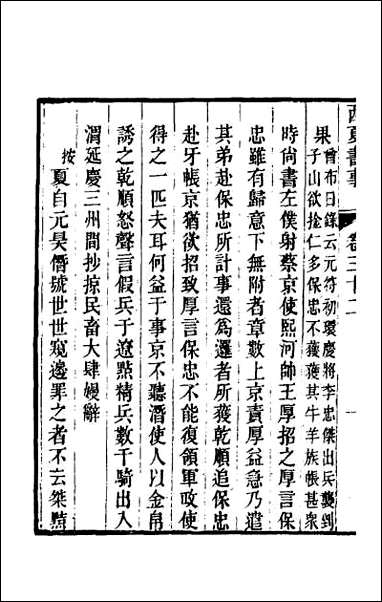 西夏書事 卷三十二 一
果曾布日錄云元符初環慶將李忠傑出兵襲到
子山欲搶仁多保忠不獲獲其牛羊族帳甚衆
時尚書左僕射蔡京使熙河帥王厚招之厚言保
忠雖有歸意下無附者章數上京責厚益急乃遣
其弟赴保忠所計事還爲邏者所獲乾順追保忠
赴牙帳京猶欲招致厚言保忠不能復領軍政使
得之一匹夫耳何益于事京不聽潛使人以金帛
誘之乾順怒聲言假兵于遼點精兵數千騎出入
渭延慶三州間抄掠民畜大肆嫚辭
按夏自元昊僭號世世窺邊罪之者不云桀黠